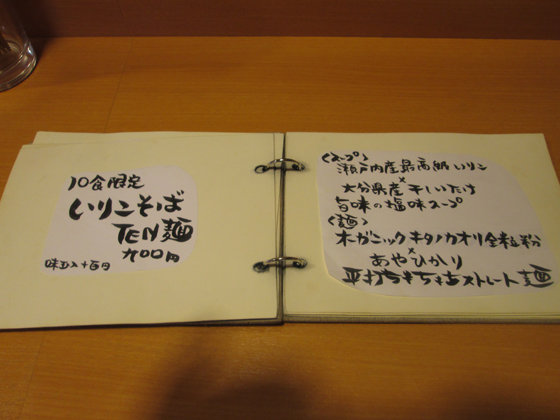 10食限定
いりこそば
TEN麺
九〇〇円
味玉入+百円
〈スープ〉
瀬戸内産最高級いりこ
×
大分県産干しいたけ
旨味の塩味スープ
〈麺〉
オーガニックキタノカオリ全粒粉
×
あやひかり
平打ちもちもちストレート麺